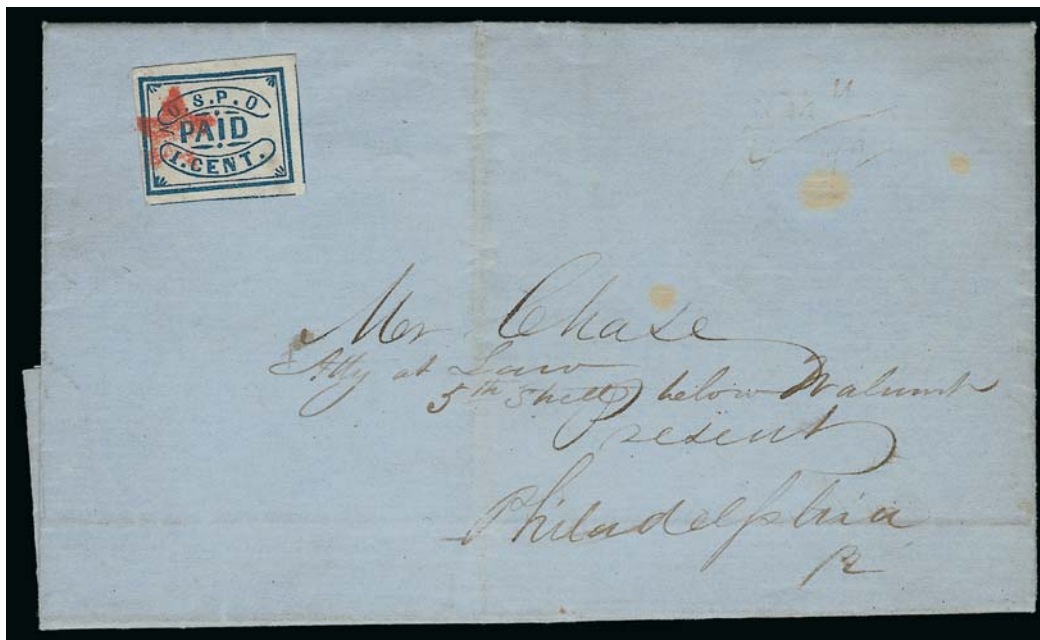 U.S.P.O
PAID
1.CENT.
Mr Chase
Atty at Law
5th Street below Walnut
Present
Philadelphia